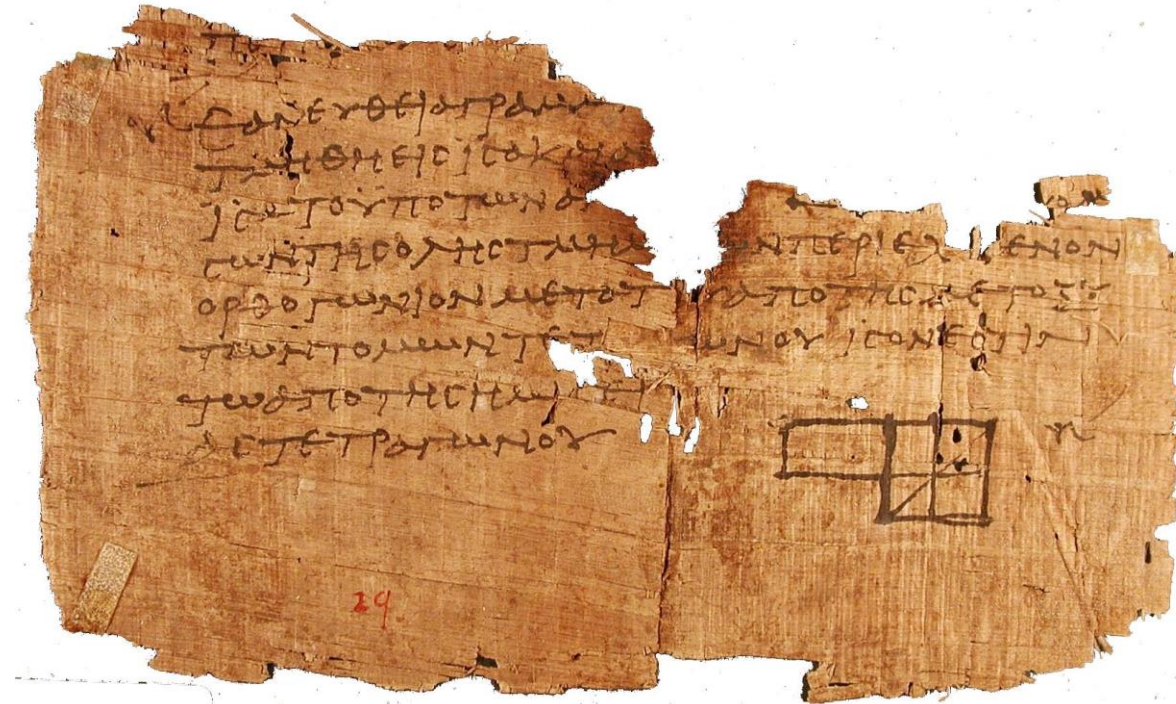 ΕΑΝ ΕΥΘΕΙΑ ΓΡΑΜΜ
ΤΜΗΘΗ ΕΙϹ ΙϹΑ ΚΑΙ ΑΝ
ΙϹΑ ΤΟ ΥΠΟ ΤΩΝ ΑΝ
ϹΩΝ ΤΗϹ ΟΛΗϹ ΤΜΗΜ ΩΝ ΠΕΡΙΕΧ ΕΝΟΝ
ΟΡΘΟΓΩΝΙΟΝ ΜΕΤΑ Τ ΑΠΟ ΤΗϹ ΜΕΤΟΞΥ
ΤΩΝ ΤΟΜΩΝ ΤΕΤ ΩΝΟΥ ΙϹΟΝ ΕϹΤΙΝ
ΤΩ ΑΠΟ ΤΗϹ ΗΜΙϹΕΙ
ΑϹ ΤΕΤΡΑΓΩΝΟΥ
29